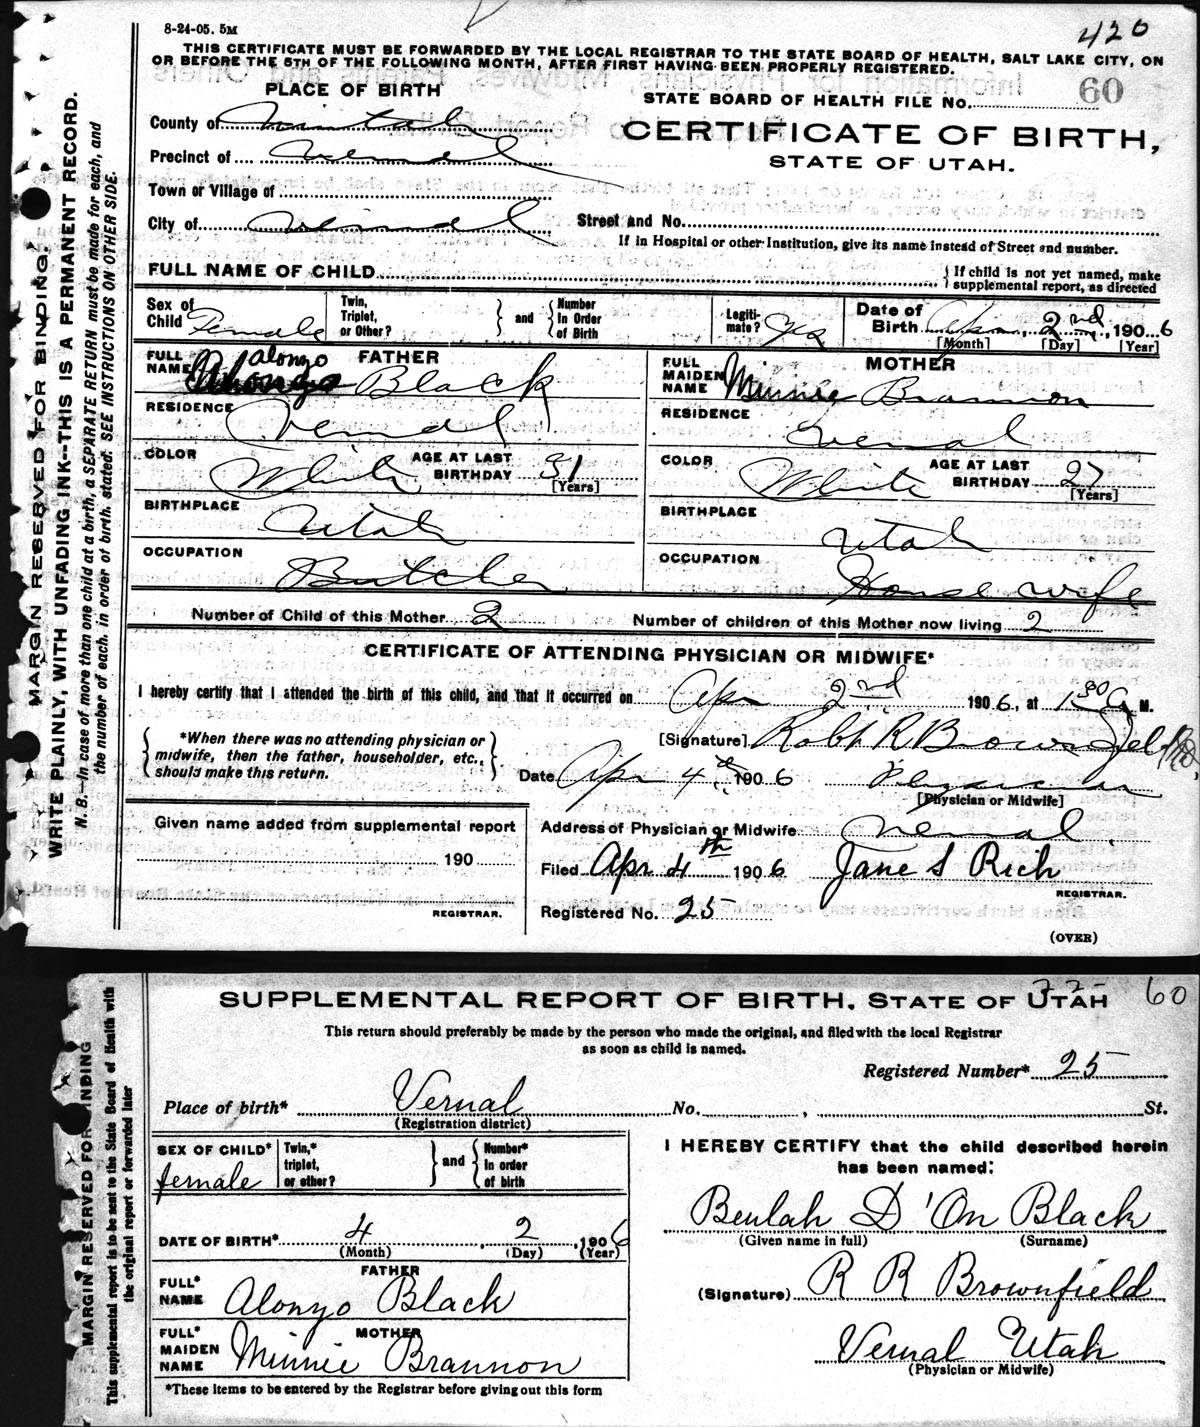 8-24-05. 5M
420
THIS CERTIFICATE MUST BE FORWARDED BY THE LOCAL REGISTRAR TO THE STATE BOARD OF HEALTH, SALT LAKE CITY, ON
OR BEFORE THE 5TH OF THE FOLLOWING MONTH, AFTER FIRST HAVING BEEN PROPERLY REGISTERED.
PLACE OF BIRTH
STATE BOARD OF HEALTH FILE No. 60
County of Uintah
CERTIFICATE OF BIRTH,
STATE OF UTAH.
Precinct of Vernal
Town or Village of
City of Vernal Street and No.
If in Hospital or other Institution, give its name instead of Street and number.
FULL NAME OF CHILD { If child is not yet named, make supplemental report, as directed
Sex of Child Female Twin, Triplet, or Other? } and { Number In Order of Birth Legiti-mate? Yes Date of Birth Apr 2nd, 1906
[Month] [Day] [Year]
FULL NAME FATHER Alonzo Black
FULL MAIDEN NAME MOTHER Minnie Brannon
RESIDENCE Vernal
RESIDENCE Vernal
COLOR White AGE AT LAST BIRTHDAY 31 [Years]
COLOR White AGE AT LAST BIRTHDAY 27 [Years]
BIRTHPLACE Utah
BIRTHPLACE Utah
OCCUPATION Butcher
OCCUPATION House wife
Number of Child of this Mother 2 Number of children of this Mother now living 2
CERTIFICATE OF ATTENDING PHYSICIAN OR MIDWIFE*
I hereby certify that I attended the birth of this child, and that it occurred on Apr 2nd 1906, at 1 30 A M.
{ *When there was no attending physician or midwife, then the father, householder, etc., should make this return. }
[Signature] Robt R Brownfield
Date Apr 4th 1906 Physician
[Physician or Midwife]
Given name added from supplemental report
190
REGISTRAR.
Address of Physician or Midwife Vernal
Filed Apr 4th 1906 Jane S Rich
REGISTRAR.
Registered No. 25
(OVER)
MARGIN RESERVED FOR BINDING.
WRITE PLAINLY, WITH UNFADING INK--THIS IS A PERMANENT RECORD.
N. B.—In case of more than one child at a birth, a SEPARATE RETURN must be made for each, and
the number of each, in order of birth, stated. SEE INSTRUCTIONS ON OTHER SIDE.
60
SUPPLEMENTAL REPORT OF BIRTH, STATE OF UTAH
This return should preferably be made by the person who made the original, and filed with the local Registrar
as soon as child is named.
Registered Number* 25
Place of birth* Vernal No. , St.
(Registration district)
SEX OF CHILD* female Twin,* triplet, or other? } and { Number* In order of birth
DATE OF BIRTH* 4 2, 1906
(Month) (Day) (Year)
FULL* NAME FATHER Alonzo Black
FULL* MAIDEN NAME MOTHER Minnie Brannon
*These items to be entered by the Registrar before giving out this form
I HEREBY CERTIFY that the child described herein
has been named:
Beulah D'On Black
(Given name in full) (Surname)
(Signature) R R Brownfield
Vernal Utah
(Physician or Midwife)
MARGIN RESERVED FOR BINDING
This supplemental report is to be sent to the State Board of Health with
the original report or forwarded later